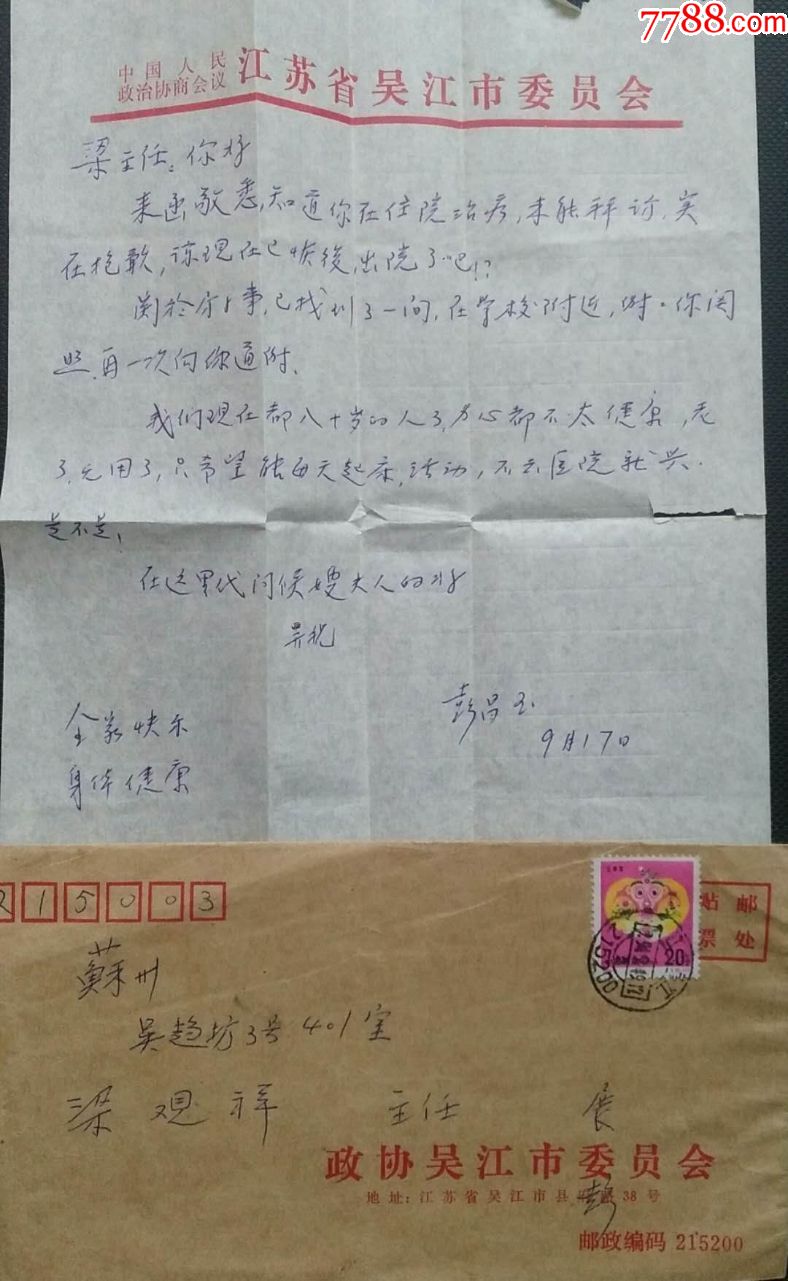 7788.com
中国人民
政治协商会议 江苏省吴江市委员会
梁主任：你好
来函敬悉，知道你在住院治疗，未能拜访，实
在抱歉，谅现在已恢後，出院了吧！？
関於事，已找到了一间，在学校附近，谢你関
照，再一次向你道谢。
我们现在都八十岁的人了，身心都不太健康，老
了，无用了，只希望能每天起床，活动，不去医院就兴．
是不是！
在这里代问候嫂夫人的好
昇祝
彭昌玉
9月17日
全家快乐
身体健康
215003
20
215200
贴邮
票处
蘇州
吴趋坊3号401室
梁观祥 主任 展
政协吴江市委员会
地址：江苏省吴江市县38号
彭
邮政编码 215200